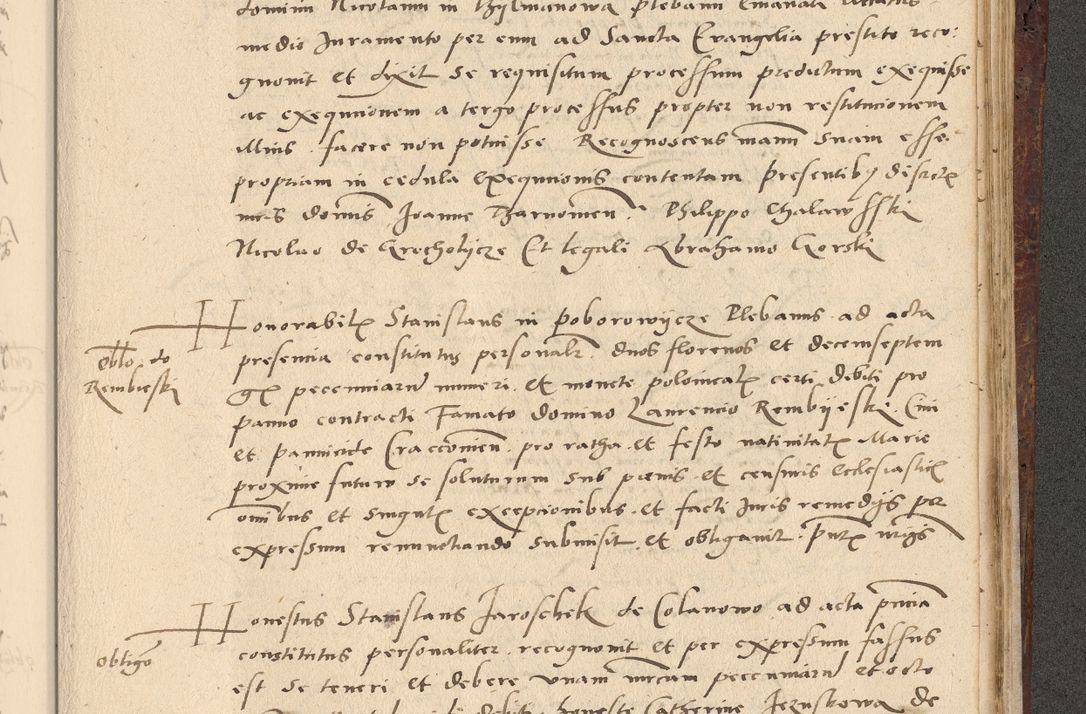 domini Nicolaum in Chylmanowa plebani emanata
medio Juramento per eum ad Sancta Evangelia prestito reco:
gnovit et dixit se requisitum processum predictum exequisse
ac exequutionem a tergo processus propter non restitucionem
illius facere non potuisse Recognoscens manu suam esse
propriam in cedula exequutionis contentam presentibus discret
viris dominis Joanne Barnomen. Philippo Chalawsski
Nicolao de Grocholycze Et legali Abrahamo Gorski
Honorabilis Stanislaus in Poborowycze Plebanus ad acta
presentia constitutus personalr duos florenos et decemseptem
Gr pecuniarum numeri et monete polonicalis certi debiti pro
panno contracti Famato domino Laurencio Rembyeski Civi
et pannicide Craccomen pro ratha et festo nativitatis Marie
proxime futuro se soluturum sub penis et censuris ecclesiasticis
omnibus et singulis excepcionibus et facti Juris remedys per
expressum renunctiando submisit et obligavit. pntz
obllo do
Rembieski
Honestus Stanislaus Jaroschek de Colanowo ad acta pncia
constitutus personaliter recognovit et per expressum fassus
est se teneri et debere unam mrcam pecuniarum et octo
obligo
debiti honeste Catherine de